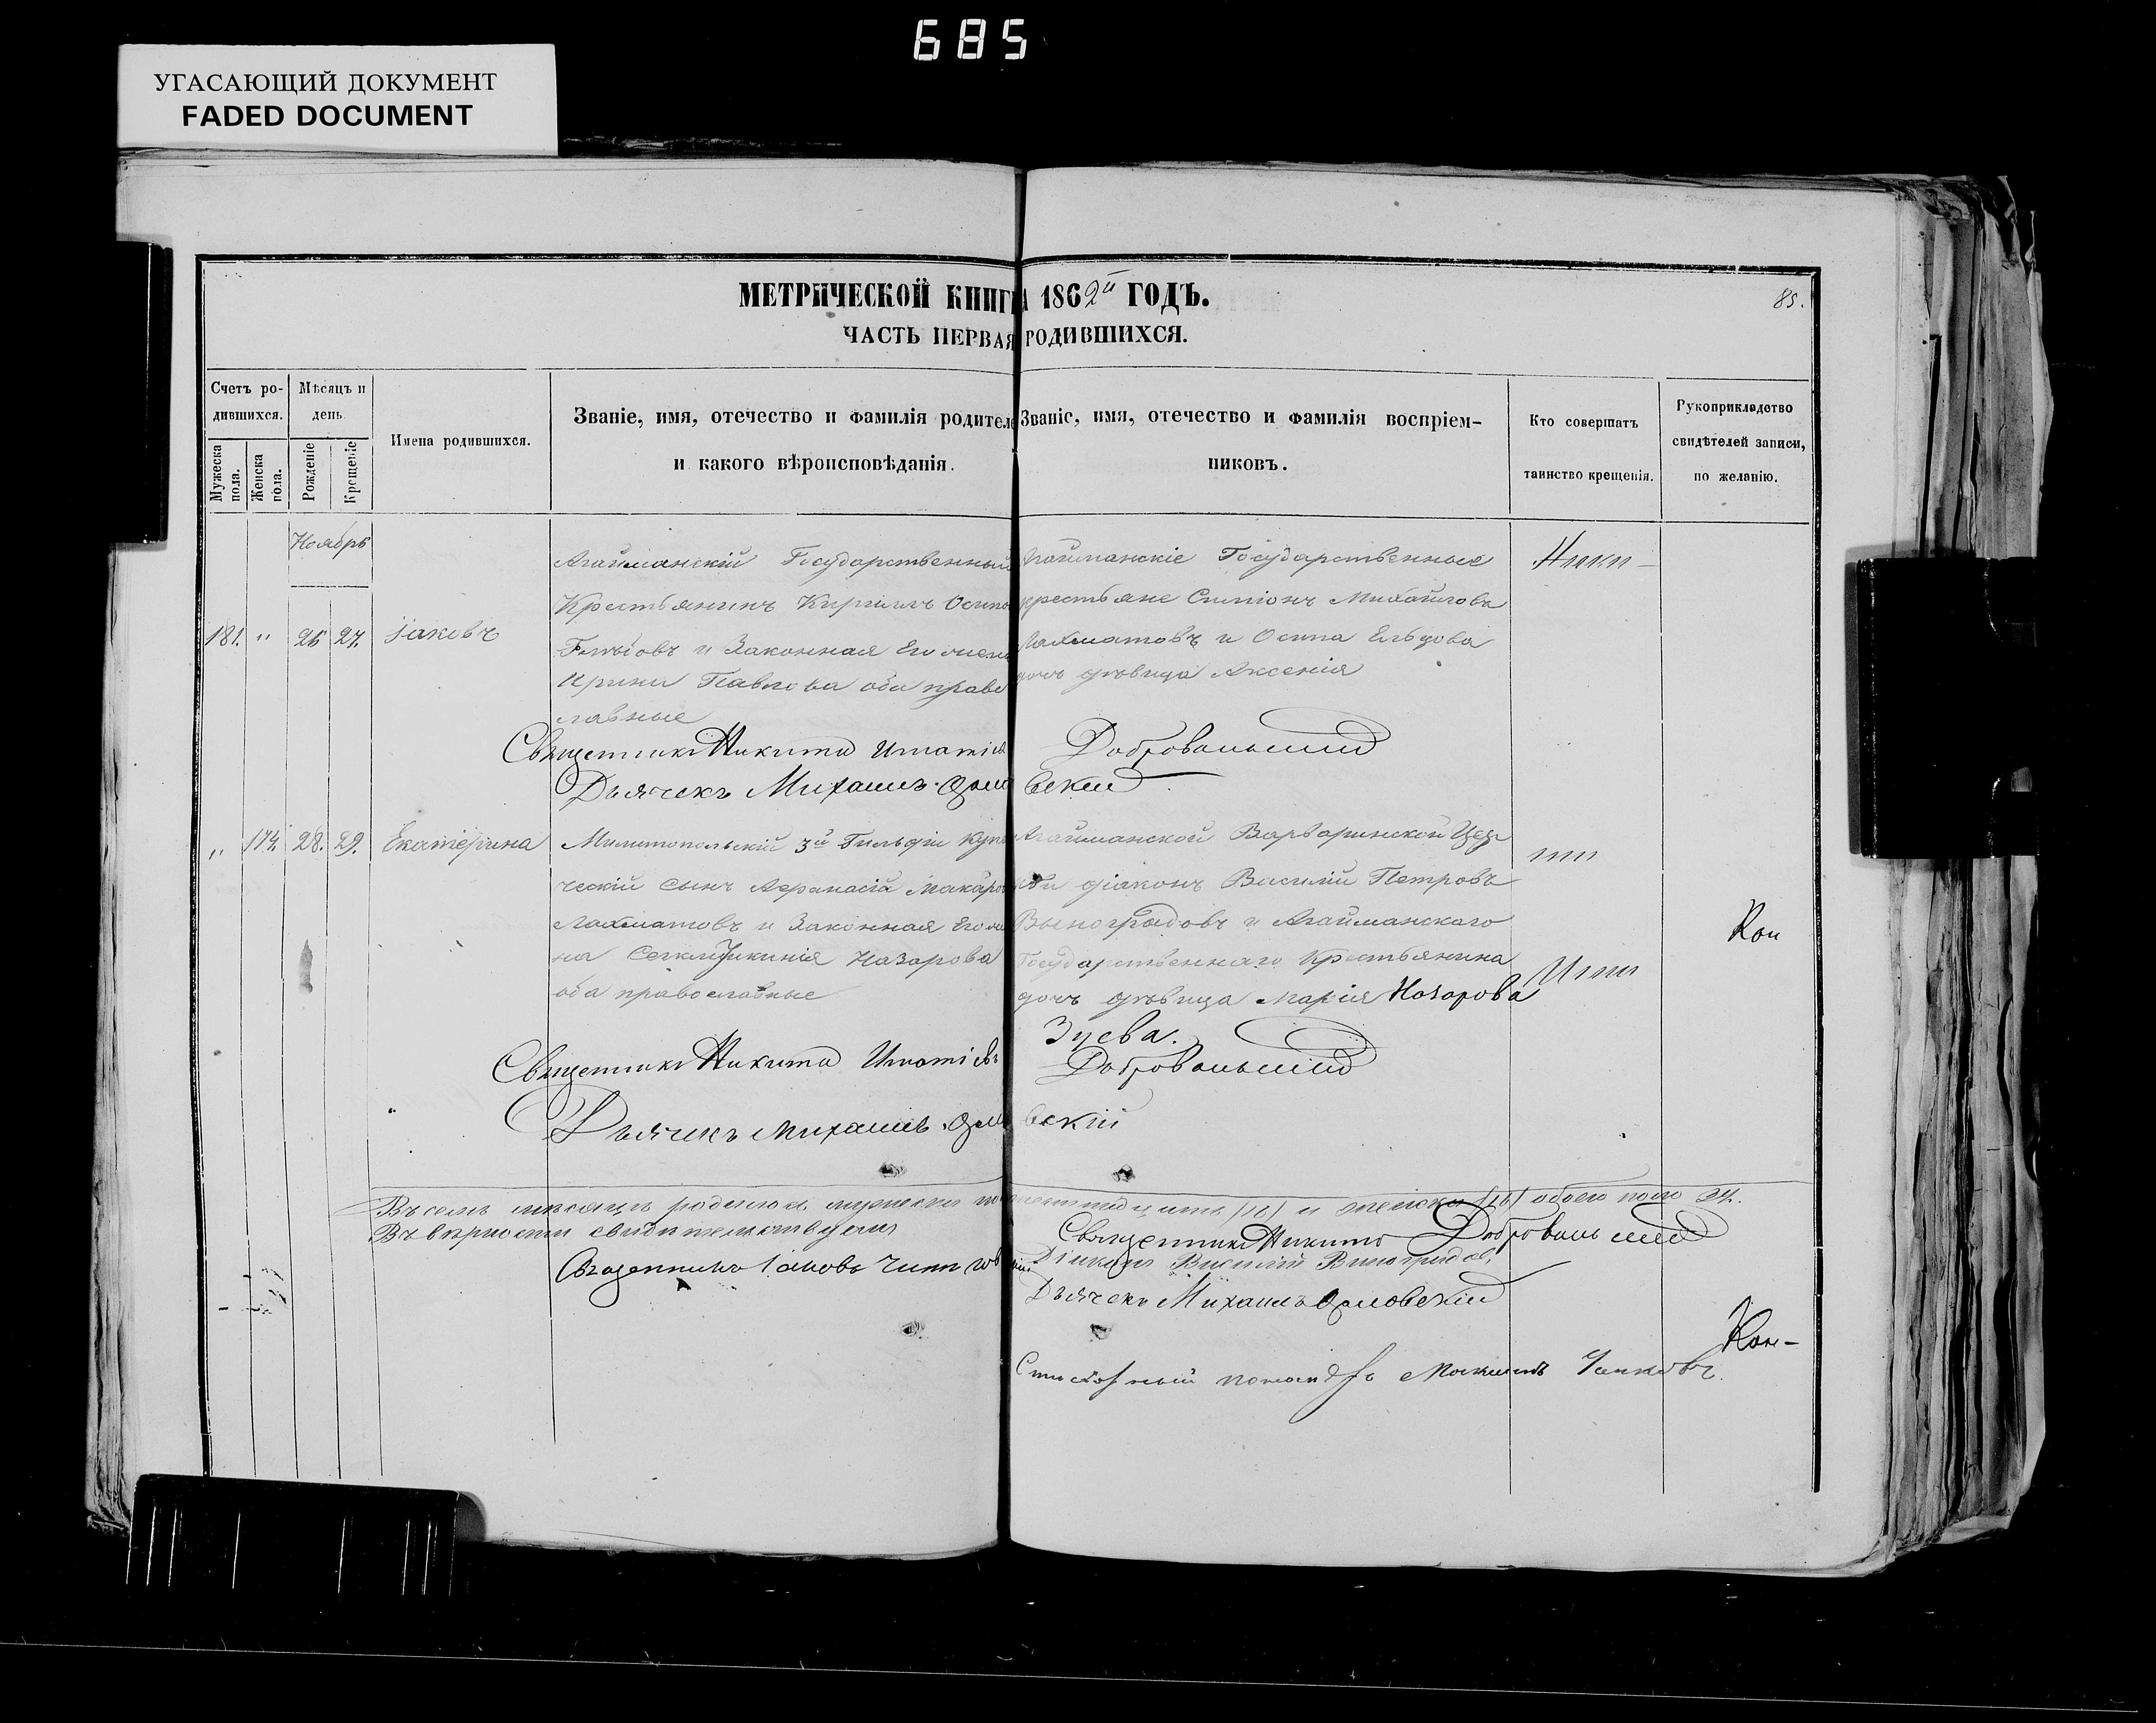 685
УГАСАЮЩИЙ ДОКУМЕНТ
FADED DOCUMENT
МЕТРИЧЕСКОЙ КНИГИ 1862й ГОДЪ.
85.
ЧАСТЬ ПЕРВАЯ РОДИВШИХСЯ.
Счетъ ро-
дившихся.
Мужеска пола.
Женска пола.
Мѣсяцъ и
день
Рожденіе
Крещеніе
Имена родившихся.
Званіе, имя, отечество и фамилія родителе
и какого вѣроисповѣданія.
Званіе, имя, отечество и фамилія воспріем-
никовъ.
Кто совершатъ
таинство крещенія.
Рукоприкладство
свидѣтелей записи,
по желанію.
Ноябрь
181. " 26 27. Іаковъ
Агайманскій Государственный
Крестьянинъ Кириллъ Осипо
и Законная Его жена
Ирина Павлова оба право
славные
Агайманскіе Государственные
крестьяне Симіонъ Михайловъ
Лахматовъ и Осипа Ельцова
дочь дѣвица Аксенія
Священникъ Никита Игнатіевъ Добровольскій
Дьячекъ Михаилъ Орловскій
" 174. 28. 29. Екатерина
Милитопольскій 3й Гильдіи Купе
ческій сынъ Афанасій Макаров
Лахматовъ и Законная Его же
на Назарова
оба православные
Агайманской Варваринской Цер
кви діаконъ Василій Петровъ
Виноградовъ и Агайманскаго
Государственнаго Крестьянина
дочь дѣвица Марія Назарова
Зуева.
Кон
Священникъ Никита Игнатіевъ Добровольскій
Дьячекъ Михаилъ Орловскій
Въ семъ мѣсяцѣ родилось мужеска и женска обоего пола
Въ вѣрности свидѣтельствуемъ
Священникъ Никита Добровольскій
Священникъ Іаковъ
Діаконъ Василій Виноградовъ
Дьячекъ Михаилъ Орловскій
Кон-